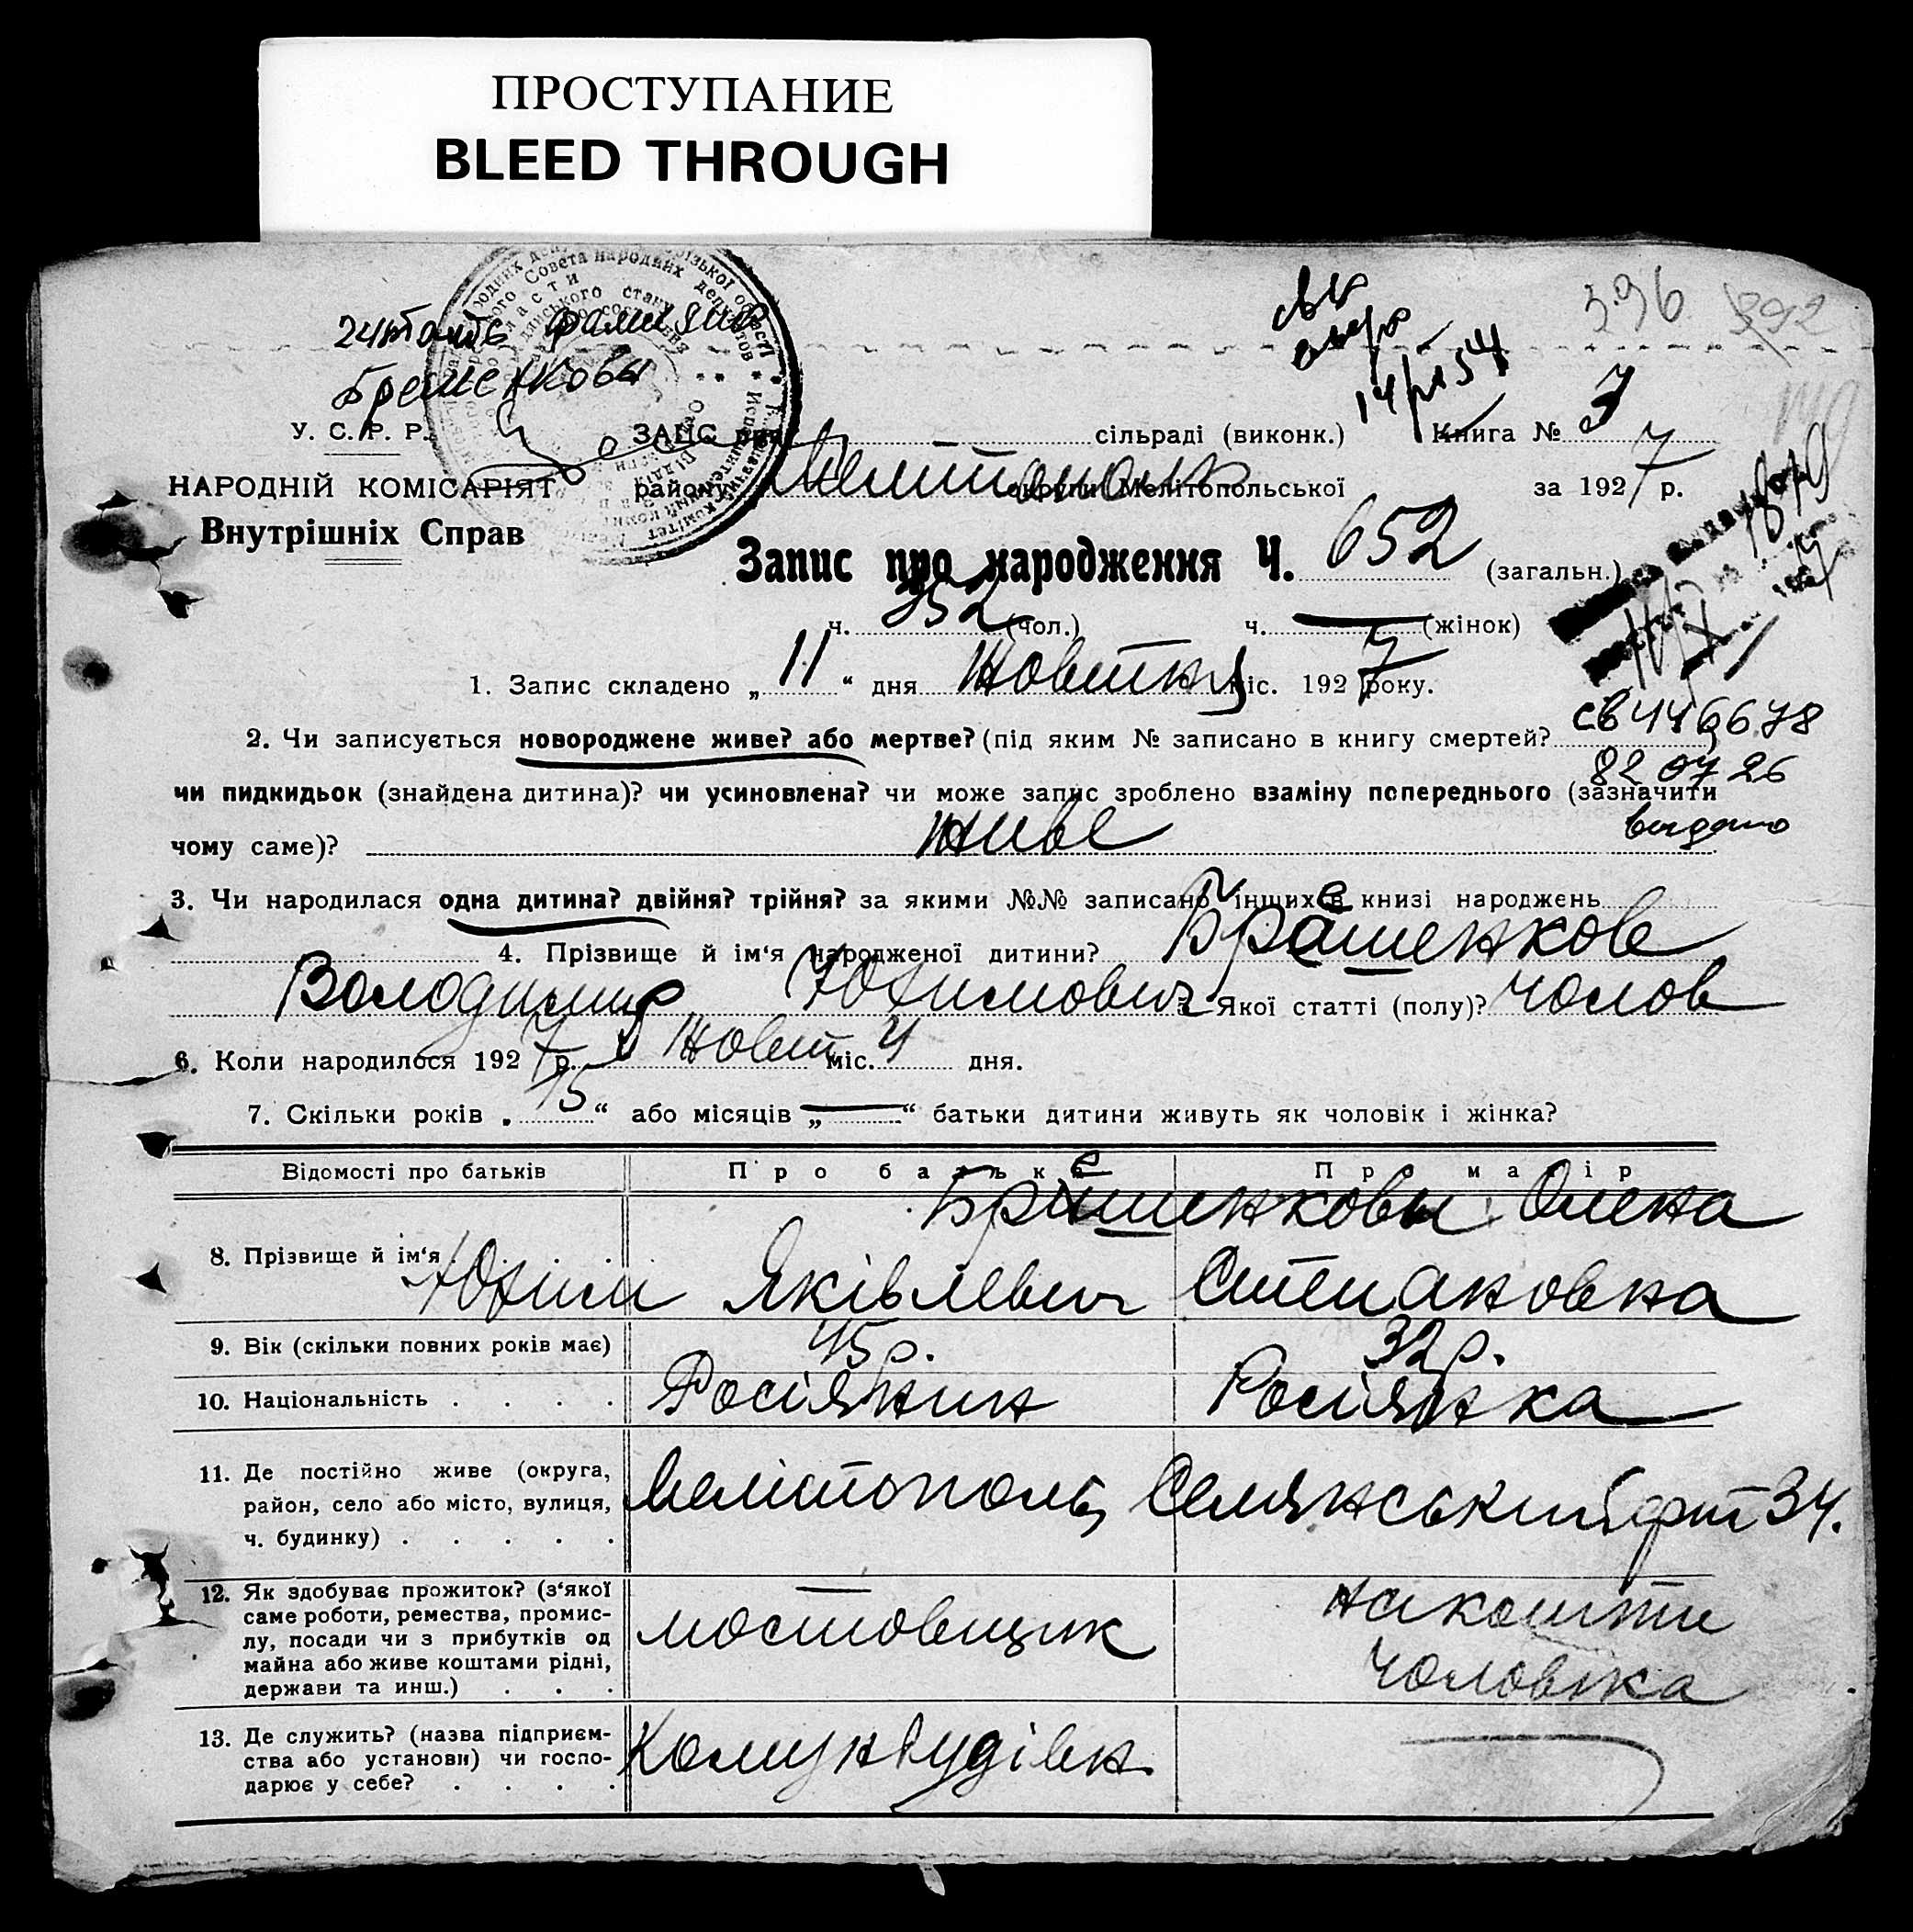 ПРОСТУПАНИЕ
BLEED THROUGH
396 392
читать фамилию
Бременковы
У. С. Р. Р.
ЗАПС при — сільраді (виконк.) Книга № 3
НАРОДНІЙ КОМІСАРІЯТ
району округи Мелітопольської за 1927 р.
Внутрішніх Справ
Запис про народження Ч. 652 (загальн.)
ч. 352 (чол.) ч. — (жінок)
1. Запис складено „ 11 “ дня Жовтня міс. 1927 року.
св 446678
2. Чи записується новороджене живе? або мертве? (під яким № записано в книгу смертей?
82 07 26
чи пидкидьок (знайдена дитина)? чи усиновлена? чи може запис зроблено взаміну попереднього (зазначити
видано
чому саме)? живе
3. Чи народилася одна дитина? двійня? трійня? за якими №№ записано інших в книзі народжень
4. Прізвище й ім‘я народженої дитини?
Володимир Юхимович Якої статті (полу)? чолов
6. Коли народилося 1927 р. Жовт міс. 4 дня.
7. Скільки років „ 15 “ або місяців „ — “ батьки дитини живуть як чоловік і жінка?
Відомості про батьків Про батька Про матір
Олена
8. Прізвище й ім‘я Юхим Яківлевич Степановна
9. Вік (скільки повних років має) 45 р. 32 р.
10. Національність . . . . Росіянин Росіянка
11. Де постійно живе (округа,
район, село або місто, вулиця, Мелітополь 34.
ч. будинку) . . . . .
12. Як здобуває прожиток? (з‘якої
саме роботи, ремества, промис-
лу, посади чи з прибутків од
майна або живе коштами рідні,
держави та инш.) . . .
мостовщик на кошти
чоловіка
13. Де служить? (назва підприєм-
ства або установи) чи госпо-
дарює у себе? . . . .